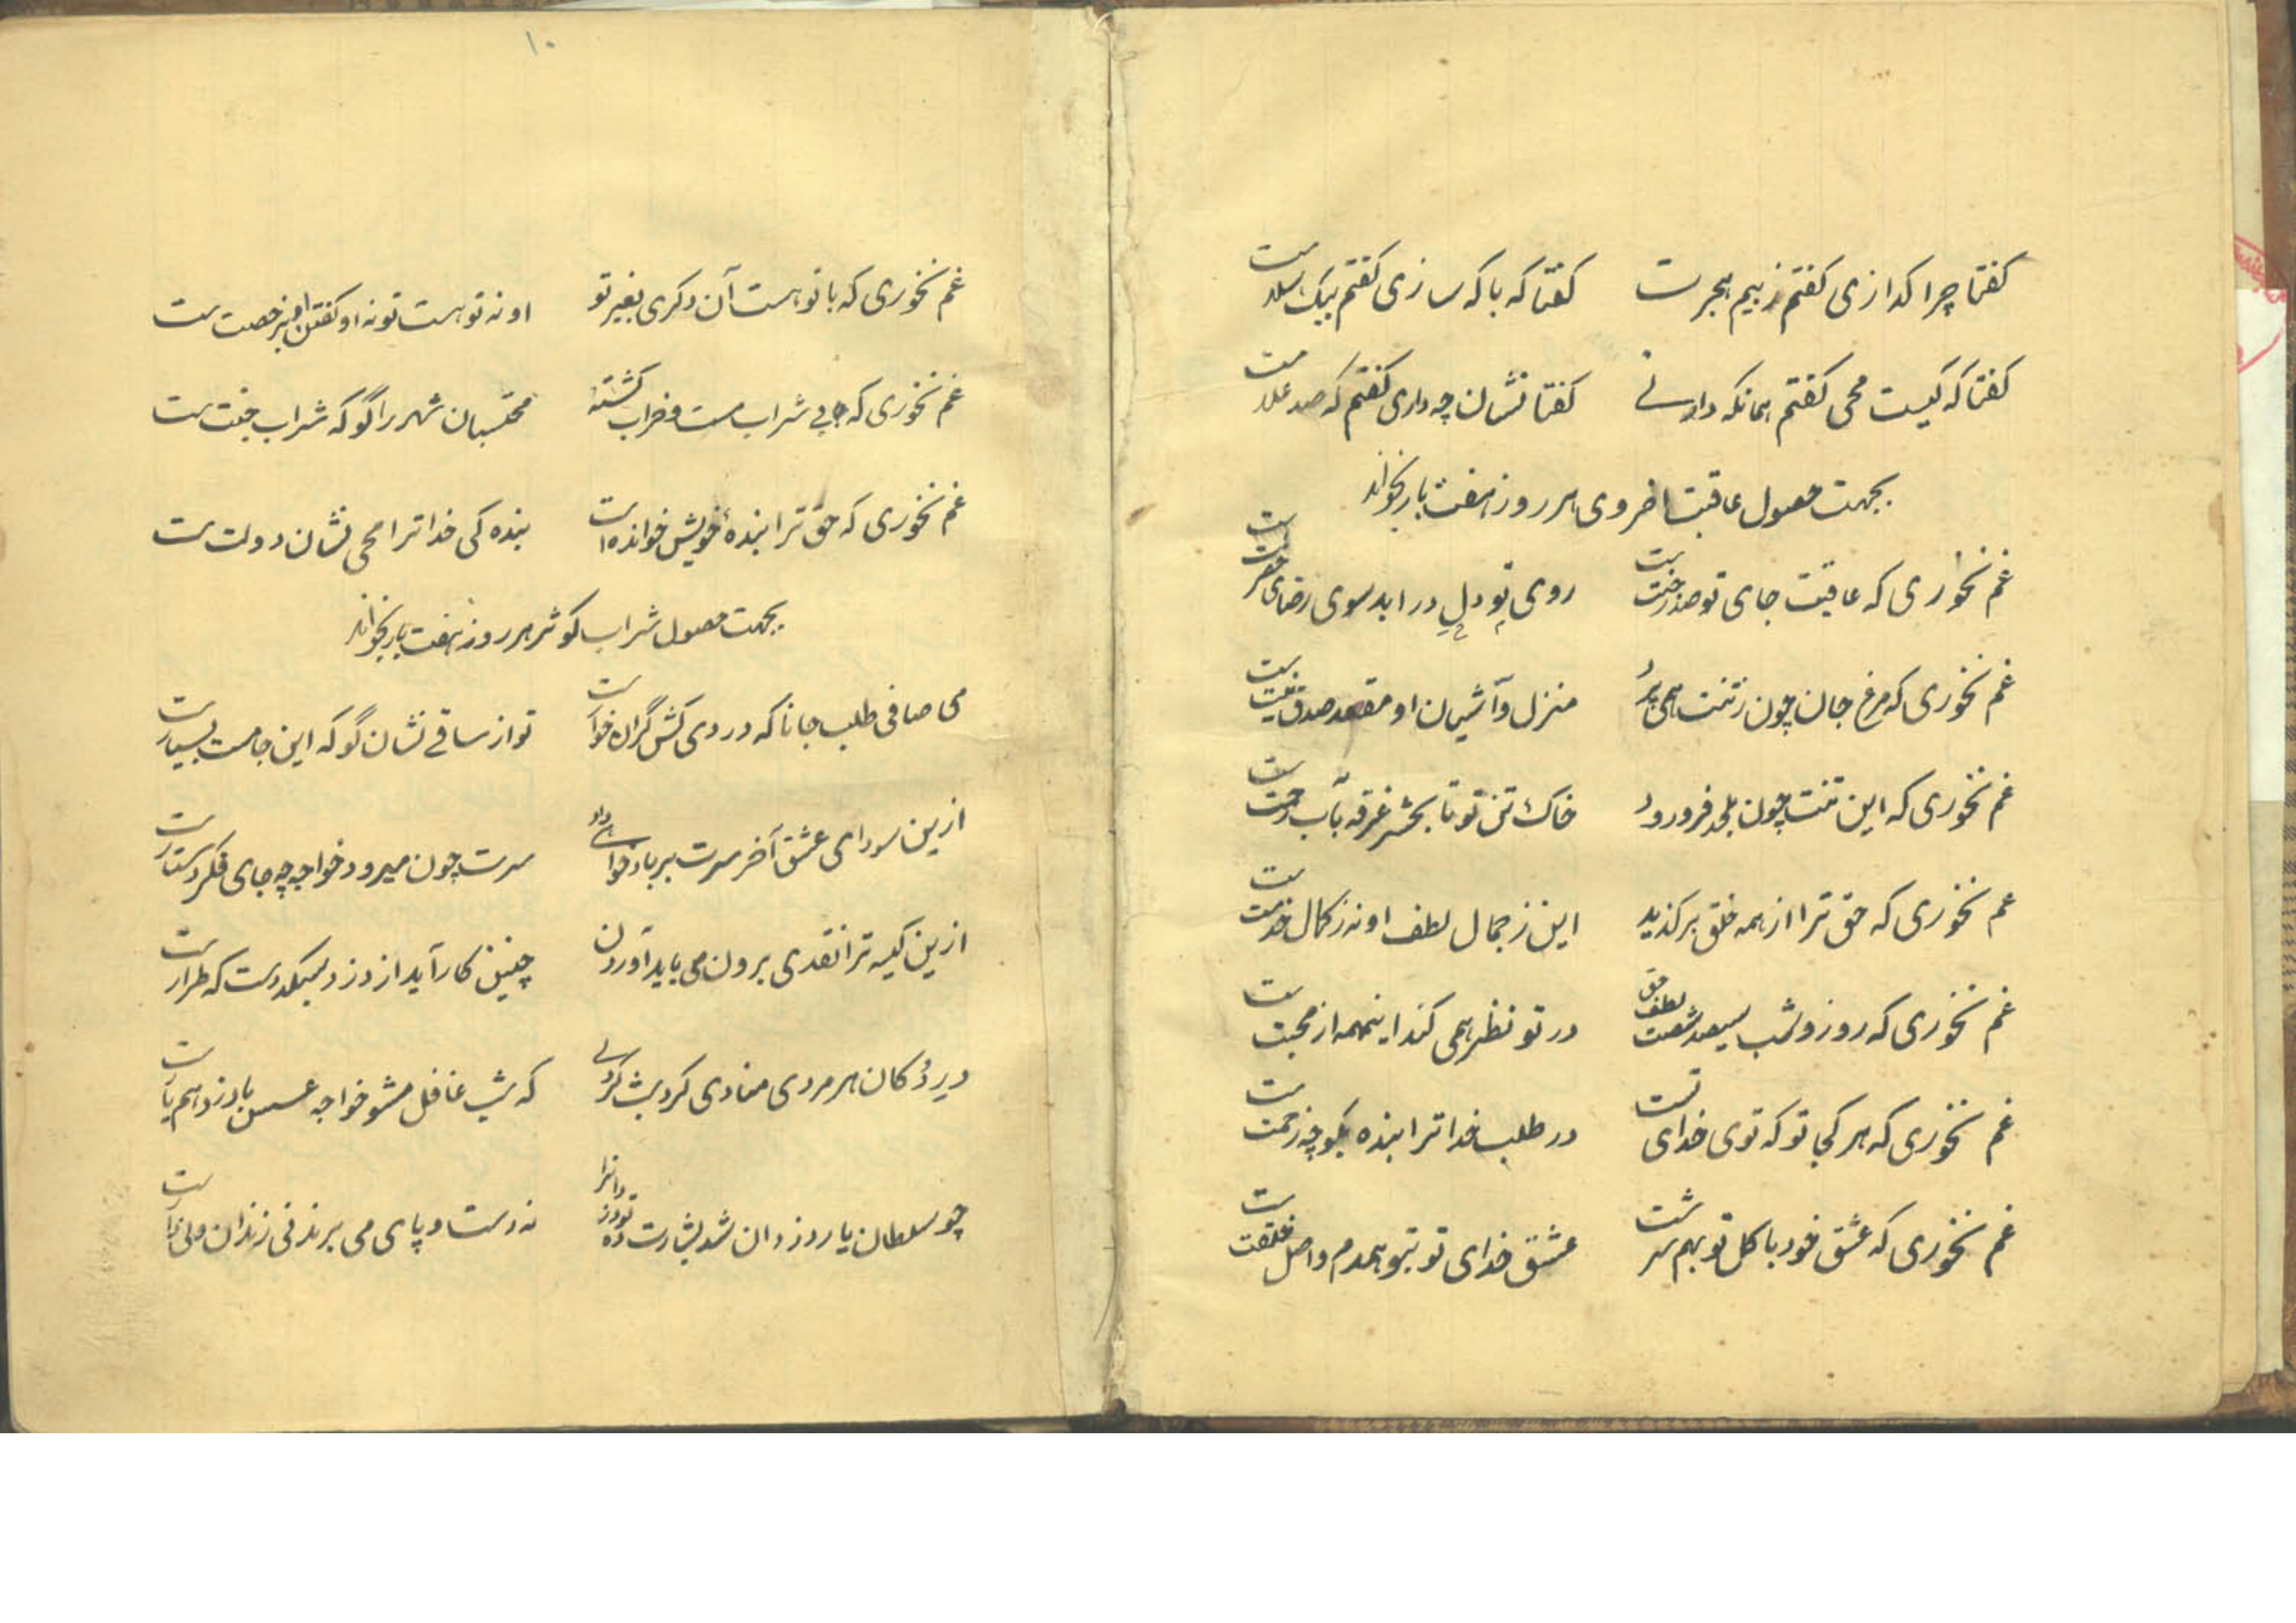 گفتا چرا گدازی گفتم ز بیم هجرت
گفتا که با که سازی گفتم بیک سلامت
گفتا که کیست محی گفتم همانکه دانی
گفتا نشان چه داری گفتم که صد علامت
بجهت حصول عاقبت اخروی هر روز هفت بار بخواند
غم نخوری که عاقبت جای تو صدر جنتست
روی تو دل در ابد سوی رضای حضرتست
غم نخوری که مرغ جان چون ز تنت همی پرد
منزل و آشیان او مقعد صدق
غم نخوری که این تنت چون بلحد فرو رود
خاک تن تو تا بحشر غرقه بآب رحمتست
غم نخوری که حق ترا از همه خلق برگزید
این ز جمال لطف او نه ز کمال خدمتست
غم نخوری که روز و شب سیصد شصت لطف حق
در تو نظر همی کند اینهمه از محبتست
غم نخوری که هر کجا تو که توی خدای تست
در طلب خدا ترا بنده بگو چه زحمتست
غم نخوری که عشق خود با گل تو بهم سرشت
عشق خدای تو بتو همدم و اصل خلقتست
۱۰
غم نخوری که با تو هست آن دگری بغیر تو
او نه تو هست تو نه او گفتن او نیز خصت ست
غم نخوری که بی شراب مست و خراب گشتهٔ
محتسبان شهر را گو که شراب جنت ست
غم نخوری که حق ترا بندهٔ خویش خوانده است
بنده کی خدا ترا محی نشان دولت ست
بجهت حصول شراب کوثر هر روز هفت بار بخواند
می صافی طلب جانا که دردی کش گران خوارست
تو از ساقی نشان گو که این جا مست بسیارست
ازین سودای عشق آخر سرت بر باد خواهی داد
سرت چون میرود خواجه چه جای فکر دستارست
ازین کیسه ترا نقدی برون می باید آوردن
چنین کار آید از دزد سبکدست که طرارست
در دکان هر مردی منادی کرد شب کردی
که شب غافل مشو خواجه عسس با دزد هم یارست
چو سلطان یار دزدان شد بشارت ده تو دزدانرا
نه دست و پای می برند نی زندان